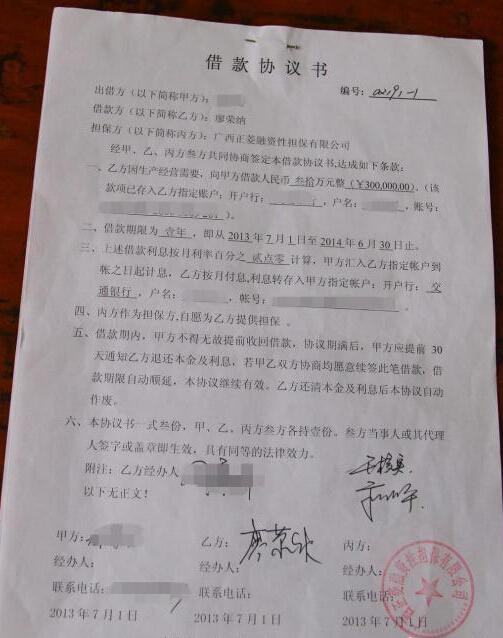 借款协议书
编号：
出借方（以下简称甲方）：
借款方（以下简称乙方）：廖荣纳
担保方（以下简称丙方）：广西正菱融资性担保有限公司
经甲、乙、丙方叁方共同协商签定本借款协议书,达成如下条款：
一、乙方因生产经营需要，向甲方借款人民币 叁拾万元整（¥300,000.00），（该
款项已存入乙方指定账户：开户行：，户名：，账号：
）。
二、借款期限为 壹年 ，即从 2013 年 7 月 1 日至 2014 年 6 月 30 日止。
三、上述借款利息按月利率百分之 贰点零 计算，甲方汇入乙方指定帐户到
帐之日起计息，乙方按月付息,利息转存入甲方指定帐户：开户行：交
通银行，户名：，帐号：
四、丙方作为担保方,自愿为乙方提供担保 。
五、借款期内，甲方不得无故提前收回借款，协议期满后，甲方应提前 30
天通知乙方退还本金及利息，若甲乙双方协商均愿意续签此笔借款，借
款期限自动顺延，本协议继续有效。乙方还清本金及利息后本协议自动
作废。
六、本协议书一式叁份，甲、乙、丙方叁方各持壹份。叁方当事人或其代理
人签字或盖章即生效，具有同等的法律效力。
附注：乙方经办人
以下无正文！
甲方： 乙方： 丙方：
经办人： 经办人： 经办人：
联系电话： 联系电话： 联系电话：
2013 年 7 月 1 日 2013 年 7 月 1 日 2013 年 7 月 1 日